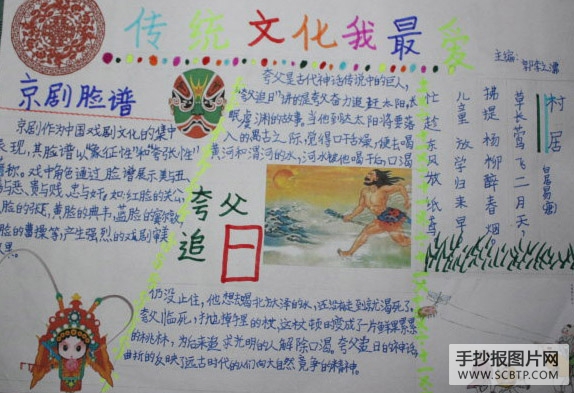 传统文化我最爱
主编:
京剧脸谱
京剧作为中国戏剧文化的集中
表现,其脸谱以“象征性”和“夸张性”
著称。戏中角色通过脸谱展示美与丑
与恶、贵与贱、忠与奸。如:红脸的关公
脸的张飞,黄脸的典韦,蓝脸的窦尔敦
脸的曹操等,产生强烈的戏剧审美
夸父是古代神话传说中的巨人,
“夸父追日”讲的是夸父奋力追赶太阳,长
眠虞渊的故事。当他到达太阳将要落
入的禺古之际,觉得口干舌燥,便去喝
黄河和渭河的水,河水被他喝干后口渴
夸父
追日
仍没止住,他想去喝北方大泽的水,还没有走到就渴死了。
夸父临死,手抛掉手里的杖,这杖顿时变成了一片鲜果累累
的桃林,为后来追求光明的人解除口渴。夸父追日的神话,
曲折的反映了远古时代的人们向大自然竞争的精神。
村居
白居易(唐)
草长莺飞二月天,
拂堤杨柳醉春烟。
儿童放学归来早,
忙趁东风放纸鸢
手抄报图片网
WWW.SCBTP.COM